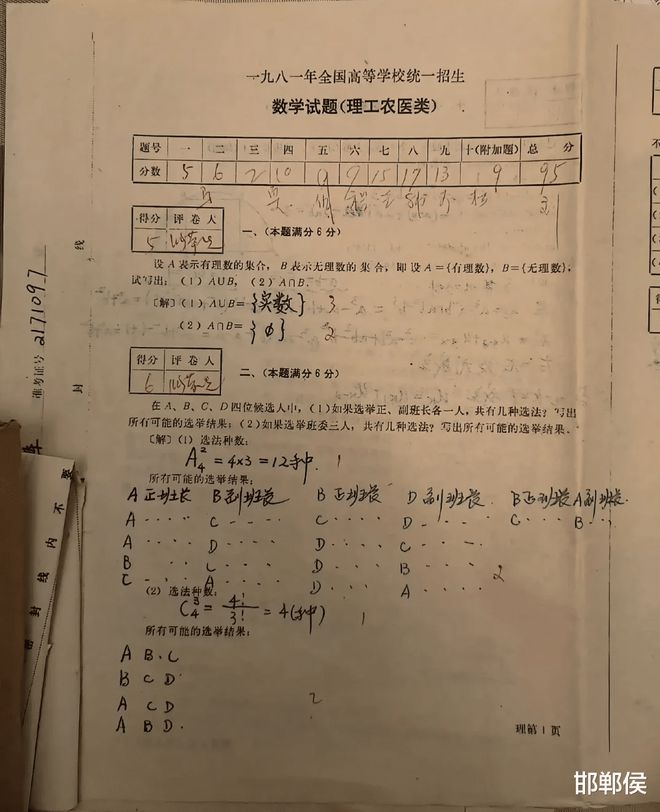 一九八一年全国高等学校统一招生
数学试题(理工农医类)
题号 一 二 三 四 五 六 七 八 九 十(附加题) 总分
分数 5 6 2 10 9 7 15 17 13 9 95
得分 评卷人
5
一、(本题满分6分)
设A表示有理数的集合，B表示无理数的集合，即设A={有理数}，B={无理数}，
试写出：(1)A∪B，(2)A∩B.
〔解〕(1)A∪B= {实数} 3
(2)A∩B= {φ} 2
得分 评卷人
6
二、(本题满分6分)
在A、B、C、D四位候选人中，(1)如果选举正、副班长各一人，共有几种选法？写出
所有可能的选举结果；(2)如果选举班委三人，共有几种选法？写出所有可能的选举结果.
〔解〕(1)选法种数：
A₄² = 4×3 = 12种. 1
所有可能的选举结果：
A正班长 B副班长 B正班长 D副班长 B正班长 A副班长.
A ···· C ···· C ···· D ···· C ··· B ···
A ···· D ···· D ···· C ····
B ···· C ···· D ···· B ···· 2
C ···· A ···· D ···· A ····
(2)选法种数：
C₄³ = 4!/3! = 4(种) 1
所有可能的选举结果：
A B. C
B C D
A C D 2
A B D.
理第1页
准考证号 2171097
线
封
密封线内不要
邯郸侯